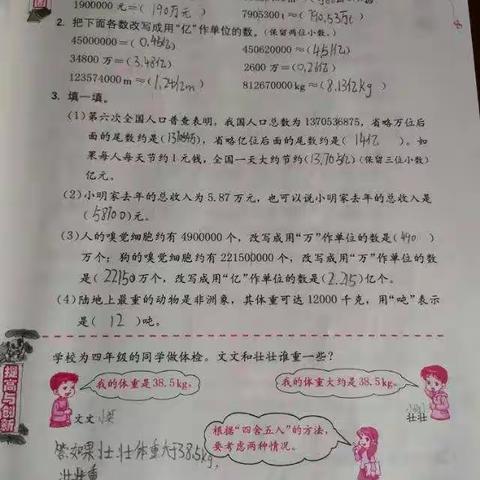 1900000元=(190万元)
7905300t≈(790.53万t)
2. 把下面各数改写成用“亿”作单位的数。(保留两位小数。)
45000000=(0.45亿)
450620000≈(4.51亿)
34800万=(3.48亿)
2600万=(0.26亿)
123574000m≈(1.24亿m)
812670000kg≈(8.13亿kg)
3. 填一填。
(1)第六次全国人口普查表明,我国人口总数为1370536875,省略万位后
面的尾数约是( ),省略亿位后面的尾数约是(14亿)。如
果每人每天节约1元钱,全国一天大约节约(13.705亿)(保留三位小数)
亿元。
(2)小明家去年的总收入为5.87万元,也可以说小明家去年的总收入是
(58700)元。
(3)人的嗅觉细胞约有4900000个,改写成用“万”作单位的数是(490)
万个;狗的嗅觉细胞约有221500000个,改写成用“万”作单位的数
是(22150)万个,改写成用“亿”作单位的数是(2.215)亿个。
(4)陆地上最重的动物是非洲象,其体重可达12000千克,用“吨”表示
是(12)吨。
提高与创新
学校为四年级的同学做体检。文文和壮壮谁重一些?
我的体重是38.5kg。
我的体重大约是38.5kg。
文文
壮壮
根据“四舍五入”的方法,
要考虑两种情况。
答:如果壮壮体重大于38.5kg,
壮壮重